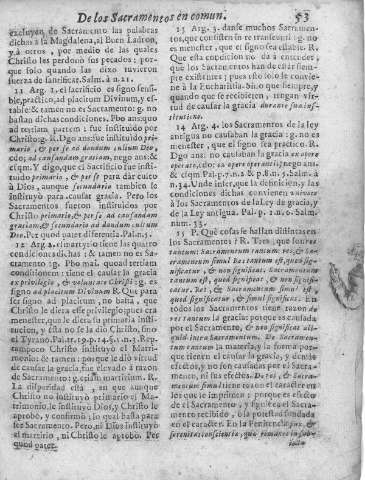 De los Sacramentos en comun. 53
excluyen de Sacramento las palabras
dichas a la Magdalena, al Buen Ladron,
y à otros, por medio de las quales
Christo les perdonò sus pecados; por-
que solo quando las dixo tuvieron
fuerza de santificar. Salm. à n. 21.
11 Arg. 1. el sacrificio es signo sensi-
ble, practico, ad placitum Divinum, y es-
table: & tamen no es Sacramento: g. no
bastan dichas condiciones. Pbo ans: quo
ad tertiam partem: fue instituido por
Christo: g. R. Dgo ans: fue instituido pri-
mario, & per se ad dandum cultum Deo,
cdo; ad causandam gratiam, nego ans: &
csqm. Y digo, que el Sacrificio fue insti-
tuido primario, & per se para dar culto
à Dios, aunque secundario tambien le
instituyò para causar gracia. Pero los
Sacramentos fueron instituidos por
Christo primario, & per se ad causandam
gratiam, & secundario ad dandum cultum
Deo. Per quod patet diferentia. Pal. n. 5.
12 Arg. 2. el martyrio tiene las quatro
condiciones dichas: & tamen no es Sa-
cramento: g. Pbo mai. quoad tertiam
condicionem: tiene el causar la gracia
ex privilegio, & voluntate Christi: g. es
signo ad placitum Divinum R. Que para
ser signo ad placitum, no basta, que
Christo le diera esse privilegio; pues era
menester, que le diera su primaria insti-
tucion, y esta no se la diò Christo, sino
el Tyrano. Pal. tr. 19. p. 14. §. 11. n. 3. Rep.
tampoco Christo instituyò el Matri-
monio: & tamen: porque le diò virtud
de causar la gracia, fue elevado à razon
de Sacramento: g. etiam martirium. R.
La disparidad està, en que aunque
Christo no instituyò primario el Ma-
trimonio, le instituyò Dios, y Christo le
aprobò, y confirmò; lo qual basta para
ser Sacramento. Pero, ni Dios instituyò
el martirio, ni Christo le aprobò. Per
quod patet.
13 Arg. 3. danse muchos Sacramen-
tos, que consisten in re transeunti: g. no
es menester, que el signo sea estable. R.
Que esta condicion no dà à entender,
que los Sacramentos han de ser siem-
pre existentes; pues esto solo le convie-
ne à la Eucharistia: sino que siempre, y
quando que se recibieren, tengan vir-
tud de causar la gracia durante sua ins-
titutione.
14 Arg. 4. los Sacramentos de la ley
antigua no causaban la gracia: g. no es
menester, que el signo sea practico. R.
Dgo ans: no causaban la gracia ex opere
operato, cdo: ex opere operantis, nego ans:
& csqm Pal. p. 7. n. 5. & p. 8. n. 5. Salm. à
n. 34. Unde infer, que la definicion, y las
condiciones dichas convienen univocè
à los Sacramentos de la Ley de gracia, y
de la Ley antigua. Pal. p. 1. n. 6. Salm.
num. 33.
15 P. Què cosas se hallan distintas en
los Sacramentos? R. Tres, que son: res
tantum: Sacramentum tantum: res, & Sa-
cramentum simul Res tantum est, quod sig-
nificatur, & non significat. Sacramentum
tantum est, quod significat, & non signifi-
catur. Res, & Sacramentum simul est,
quod significatur, & simul significat. En
todos los Sacramentos tiene razon de
res tantum la gracia: porque es causada
por el Sacramento, & non significat ali-
quid intra Sacramentum. De Sacramen-
tum tantum la materia, y la forma; por-
que tienen el causar la gracia, y demàs
efectos, y no son causadas por el Sacra-
mento, ni sus efectos. De res, & Sacra-
mentum simul tiene razon el caracter en
los que le imprimen: porque es efecto
del Sacramento, y significa el Sacra-
mento recibido, ò la potestad fundada
en el caracter. En la Penitencia, pax, &
serenitas conscientiæ, quæ remanet in sub-